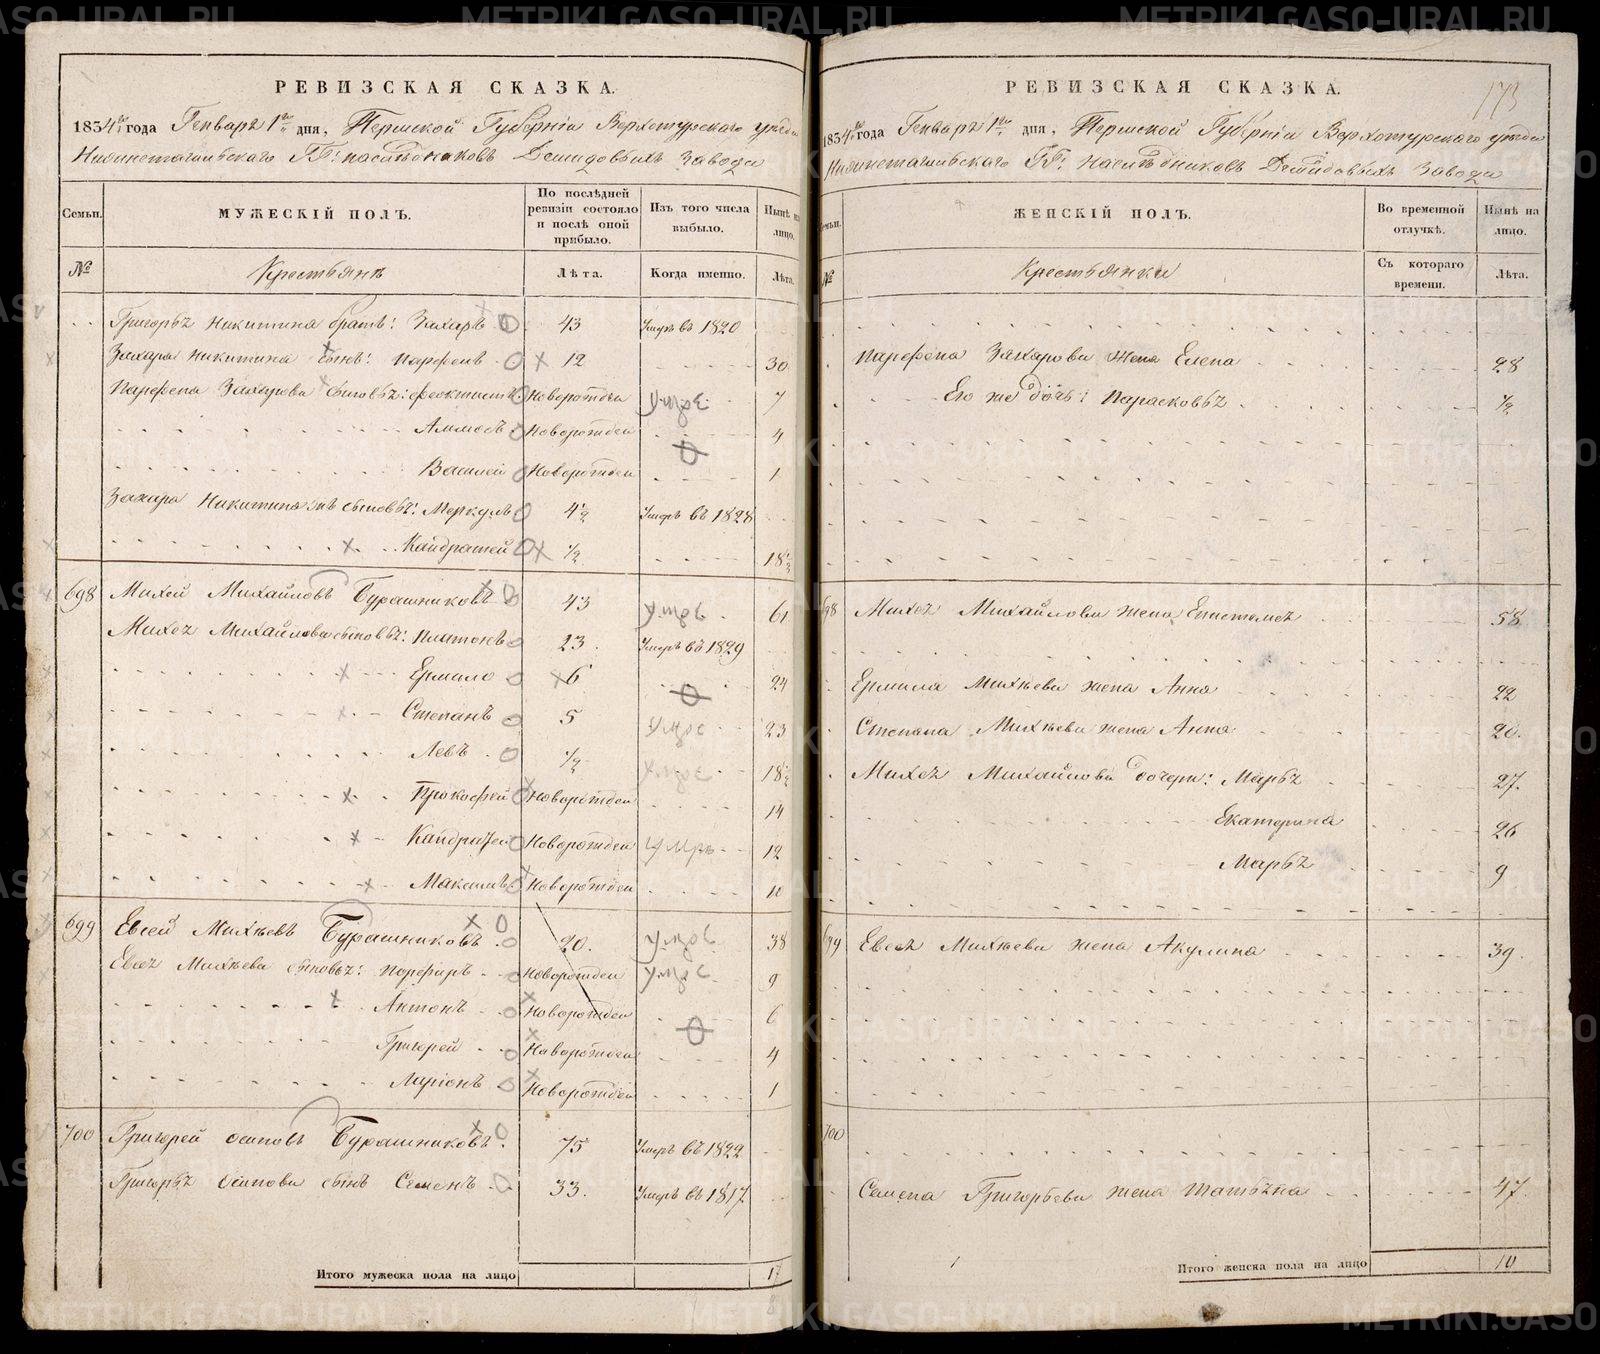 РЕВИЗСКАЯ СКАЗКА.
1834 года Генваря 1го дня, Пермской Губернiи Верхотурского уезда
Нижнетагильского ГГ: наследниковъ Демидовыхъ завода
Семьи.
МУЖЕСКІЙ ПОЛЪ.
По послѣдней ревизіи состояло и послѣ оной прибыло.
Изъ того числа выбыло.
Нынѣ на лицо.
№
Крестьяне
Лѣта.
Когда именно.
Лѣта.
Григорья Никитина братъ: Захаръ 43 Умеръ въ 1820
Захара Никитина сынъ: Парфенъ 12 30
Парфена Захарова сыновья: Феоктистъ Новорожден умре 7
Аммосъ Новорожден 4
Василей Новорожден 1
Захара Никитина сыновья: Меркулъ 4½ Умеръ въ 1828
Кандратей ½ 18½
698 Михей Михайловъ Бурашниковъ 43 умръ 61
Михея Михайлова сыновья: Платонъ 23 Умеръ въ 1829
Ермило 6 24
Степанъ 5 умре 23
Левъ ½ умре 18½
Прокофей Новорожден 14
Кандратей Новорожден умръ 12
Максимъ Новорожден 11
699 Евсей Михѣевъ Бурашниковъ 20. умръ 38
Евсея Михѣева сыновья: Порфиръ Новорожден умре 9
Антонъ Новорожден 6
Григорей Новорожден 4
Ларіонъ Новорожден 1
700 Григорей Осиповъ Бурашниковъ 75 Умеръ въ 1822
Григорья Осипова сынъ Семенъ 33 Умеръ въ 1817
Итого мужеска пола на лицо 17
173
РЕВИЗСКАЯ СКАЗКА.
1834 года Генваря 1го дня, Пермской Губернiи Верхотурского уезда
Нижнетагильского ГГ: наследниковъ Демидовыхъ завода
Семьи.
ЖЕНСКІЙ ПОЛЪ.
Во временной отлучкѣ.
Нынѣ на лицо.
№
Крестьянки
Съ котораго времени.
Лѣта.
Парфена Захарова жена Елена 28
Его же дочь: Парасковья ½
698 Михея Михайлова жена Епистемея 58
Ермила Михѣева жена Анна 22
Степана Михѣева жена Анна 20.
Михея Михайлова дочери: Марья 27.
Екатерина 26
Марья 9
699 Евсея Михѣева жена Акулина 39.
700
Семена Григорьева жена Татьяна 47.
Итого женска пола на лицо 10
METRIKI.GASO-URAL.RU